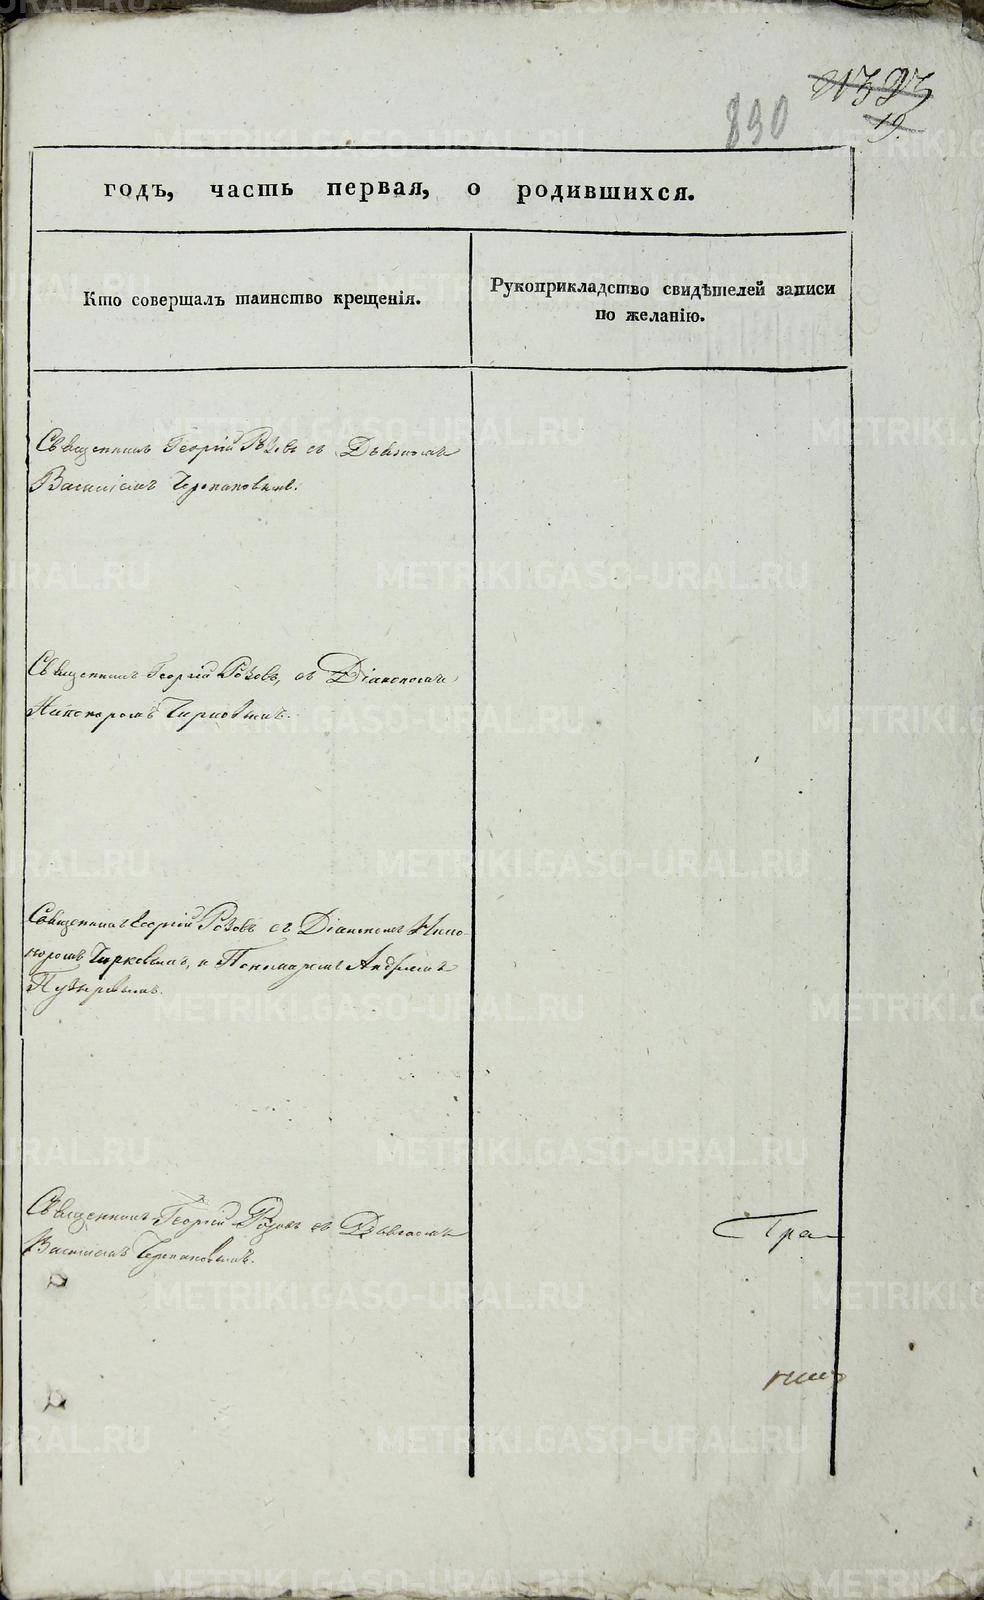 890
19.
годъ, часть первая, о родившихся.
Кто совершалъ таинство крещенія.
Рукоприкладство свидѣтелей записи
по желанію.
Священникъ Георгій Рѣзовъ съ Дьякономъ
Василіемъ Черпаковымъ.
Священникъ Георгій Рѣзовъ, съ Діакономъ
Никоноромъ Чирковымъ.
Священникъ Георгій Рѣзовъ съ Діакономъ Нико-
норомъ Чирковымъ, и Пономаремъ Андреемъ
Пузыревымъ.
Священникъ Георгій съ
Василіемъ Черпаковымъ.
METRIKI.GASO-URAL.RU